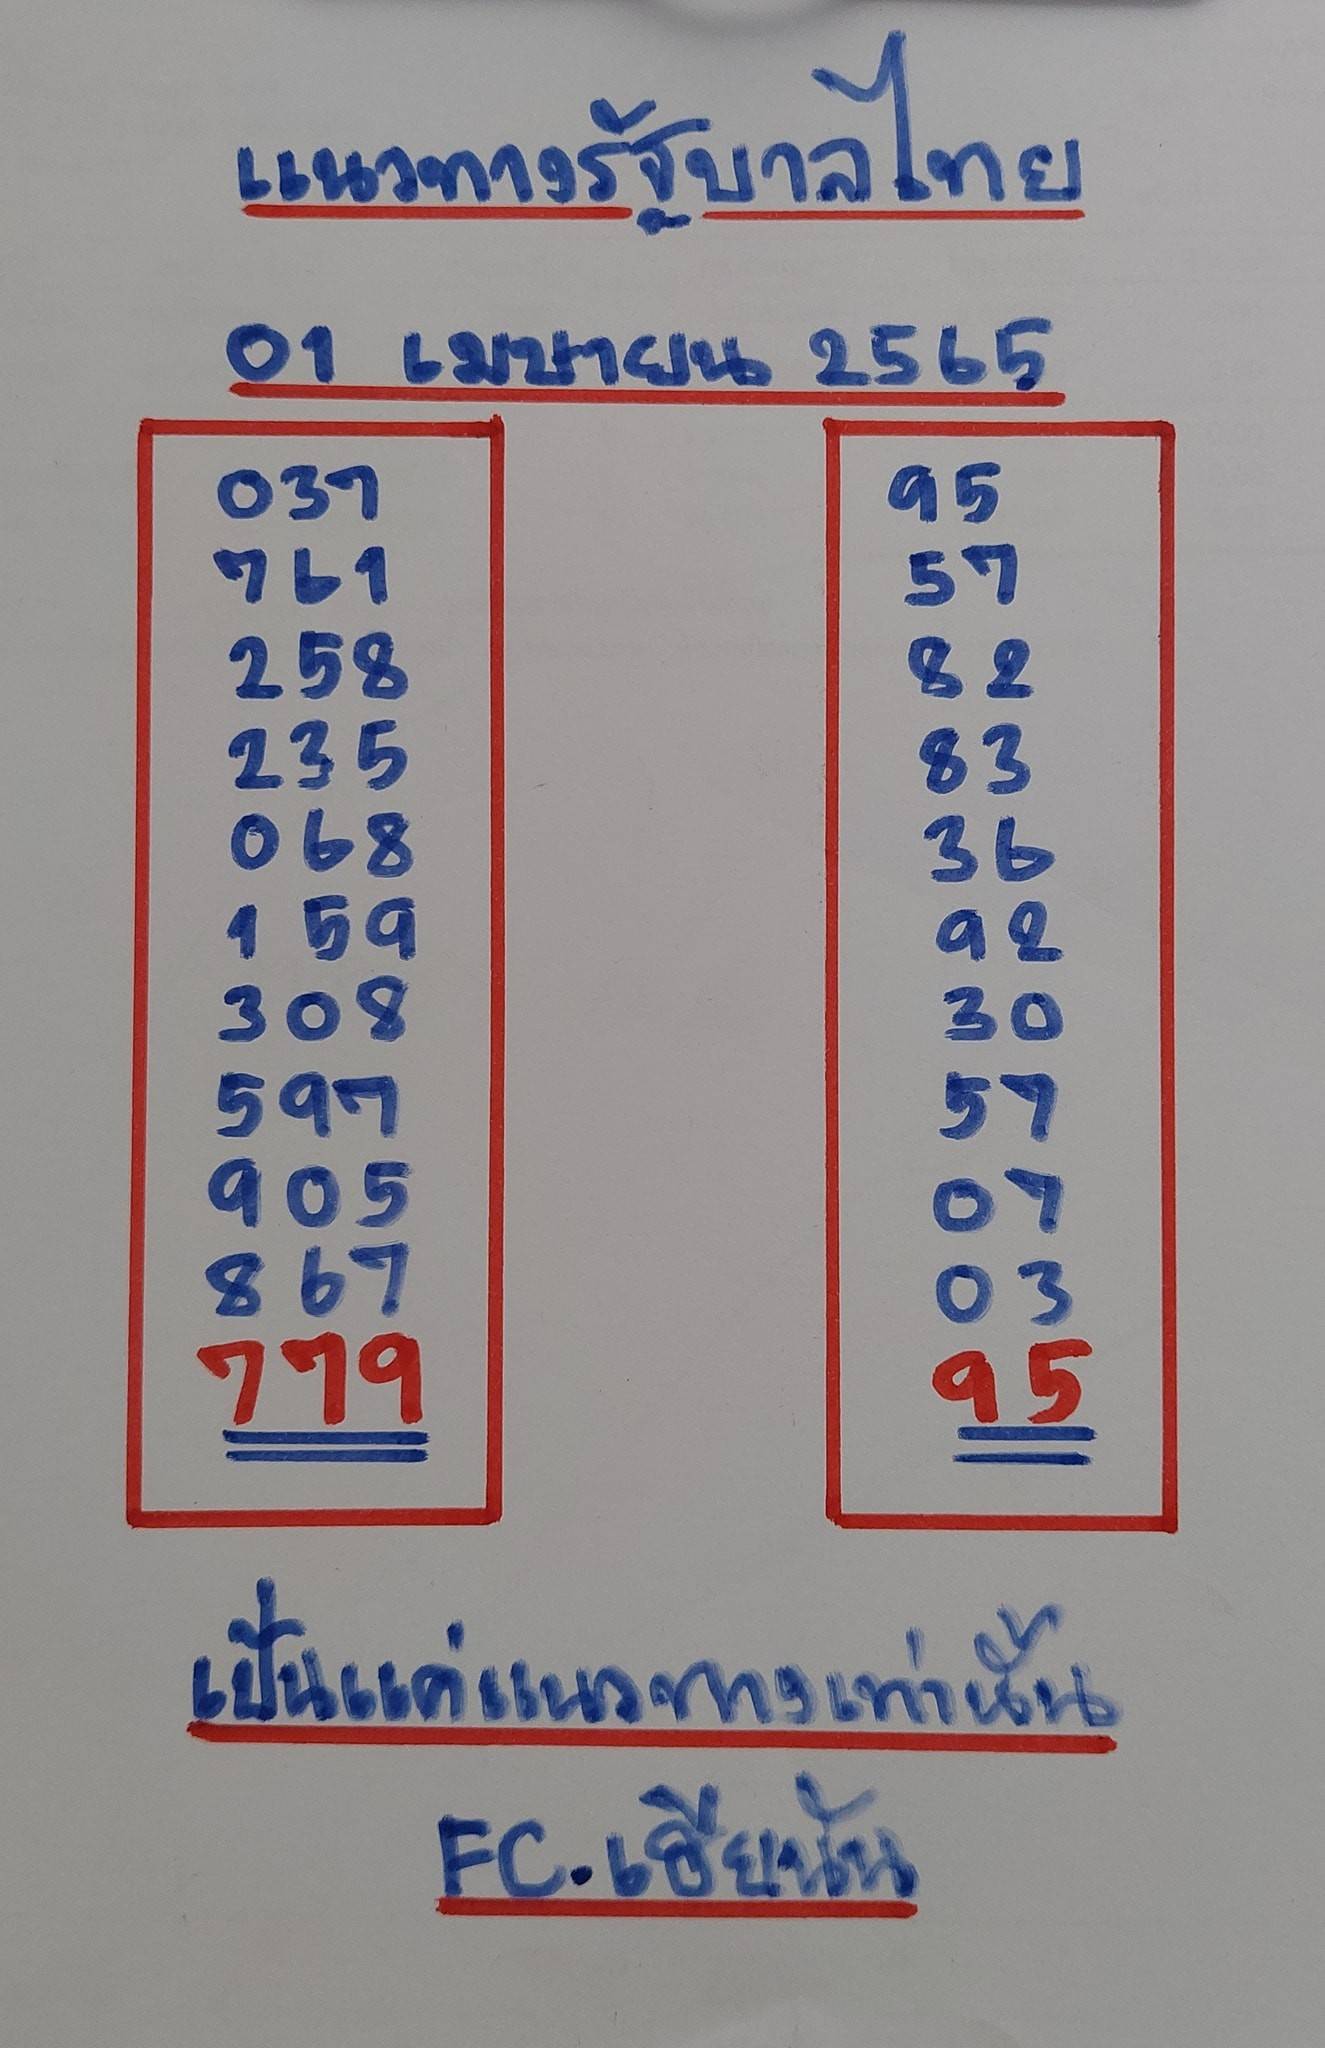 แนวทางรัฐบาลไทย
01 เมษายน 2565
037 95
761 57
258 82
235 83
068 36
159 92
308 30
597 57
905 07
867 03
779 95
เป็นแค่แนวทางเท่านั้น
FC.เฮียนัน